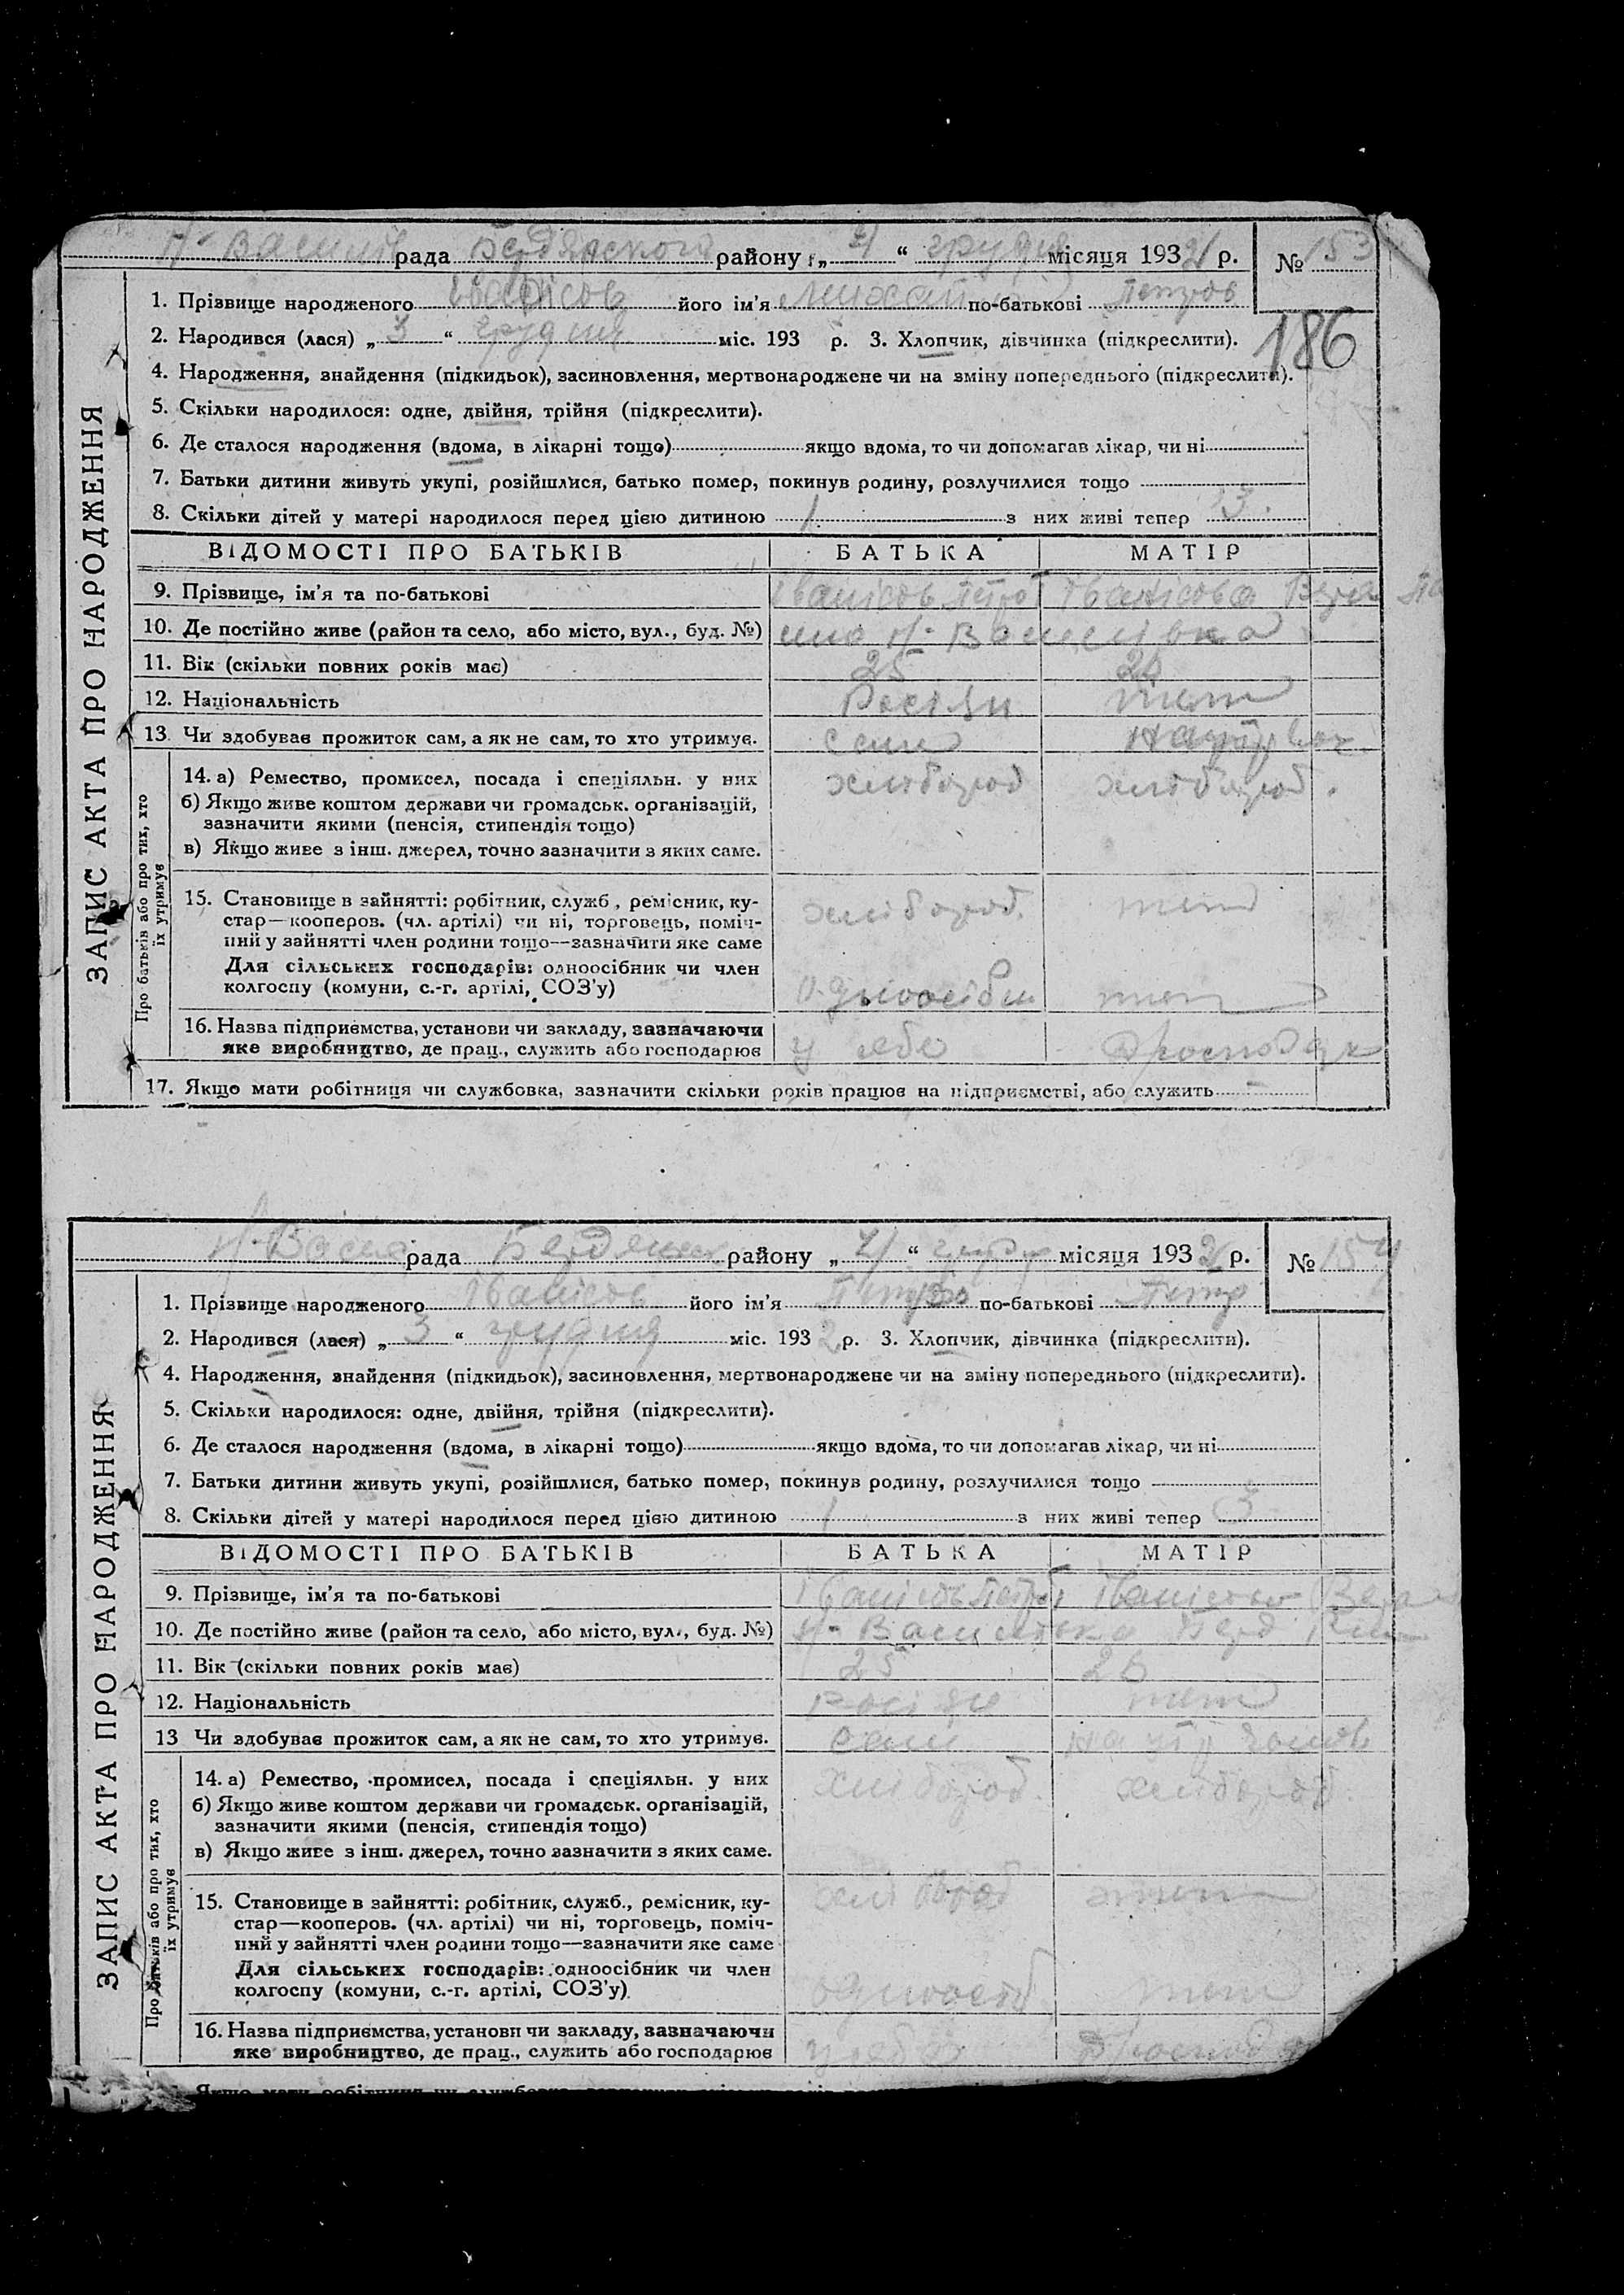 Н-Василів рада Бердянского району „4“ грудня місяця 1932 р. № 153
1. Прізвище народженого Іванісов його ім'я Михайло по-батькові Петров
186
2. Народився (лася) „3“ грудня міс. 193 р. 3. Хлопчик, дівчинка (підкреслити).
4. Народження, знайдення (підкидьок), засиновлення, мертвонароджене чи на зміну попереднього (підкреслити).
5. Скільки народилося: одне, двійня, трійня (підкреслити).
6. Де сталося народження (вдома, в лікарні тощо) якщо вдома, то чи допомагав лікар, чи ні
7. Батьки дитини живуть укупі, розійшлися, батько помер, покинув родину, розлучилися тощо
8. Скільки дітей у матері народилося перед цією дитиною 1 з них живі тепер 3.
ЗАПИС АКТА ПРО НАРОДЖЕННЯ
ВІДОМОСТІ ПРО БАТЬКІВ БАТЬКА МАТІР
9. Прізвище, ім'я та по-батькові Іванісов Петро Іванісова Вера
10. Де постійно живе (район та село, або місто, вул., буд. №) Н-Василівка
11. Вік (скільки повних років має) 25 26
12. Національність Росіян теж
13 Чи здобував прожиток сам, а як не сам, то хто утримує. сам
Про батьків або про тих, хто їх утримує
14. а) Ремество, промисел, посада і спеціяльн. у них хлібороб хлібороб.
б) Якщо живе коштом держави чи громадськ. організацій,
зазначити якими (пенсія, стипендія тощо)
в) Якщо живе з інш. джерел, точно зазначити з яких саме.
15. Становище в зайнятті: робітник, служб., ремісник, ку- хлібороб. теж
стар—кооперов. (чл. артілі) чи ні, торговець, поміч-
ний у зайнятті член родини тощо—зазначити яке саме
Для сільських господарів: одноосібник чи член
колгоспу (комуни, с.-г. артілі, СОЗ'у) одноосібн теж
16. Назва підприємства, установи чи закладу, зазначаючи
яке виробництво, де прац., служить або господарює у себе
17. Якщо мати робітниця чи службовка, зазначити скільки років працює на підприємстві, або служить
Н-Васил рада Бердянськ району „4“ груд місяця 1932 р. № 154
1. Прізвище народженого Іванісов його ім'я Петро по-батькові Петр
2. Народився (лася) „3“ грудня міс. 1932 р. 3. Хлопчик, дівчинка (підкреслити).
4. Народження, знайдення (підкидьок), засиновлення, мертвонароджене чи на зміну попереднього (підкреслити).
5. Скільки народилося: одне, двійня, трійня (підкреслити).
6. Де сталося народження (вдома, в лікарні тощо) якщо вдома, то чи допомагав лікар, чи ні
7. Батьки дитини живуть укупі, розійшлися, батько помер, покинув родину, розлучилися тощо
8. Скільки дітей у матері народилося перед цією дитиною 1 з них живі тепер 3
ЗАПИС АКТА ПРО НАРОДЖЕННЯ
ВІДОМОСТІ ПРО БАТЬКІВ БАТЬКА МАТІР
9. Прізвище, ім'я та по-батькові Іванісов Петро Іванісова Вера
10. Де постійно живе (район та село, або місто, вул., буд. №) Н-Василівка Берд
11. Вік (скільки повних років має) 25 26
12. Національність Росіян теж
13 Чи здобував прожиток сам, а як не сам, то хто утримує. сам
Про батьків або про тих, хто їх утримує
14. а) Ремество, промисел, посада і спеціяльн. у них хлібороб. хлібороб.
б) Якщо живе коштом держави чи громадськ. організацій,
зазначити якими (пенсія, стипендія тощо)
в) Якщо живе з інш. джерел, точно зазначити з яких саме.
15. Становище в зайнятті: робітник, служб., ремісник, ку- хлібороб теж
стар—кооперов. (чл. артілі) чи ні, торговець, поміч-
ний у зайнятті член родини тощо—зазначити яке саме
Для сільських господарів: одноосібник чи член
колгоспу (комуни, с.-г. артілі, СОЗ'у) одноосіб теж
16. Назва підприємства, установи чи закладу, зазначаючи
яке виробництво, де прац., служить або господарює у себе
Якщо мати робітниця чи службовка